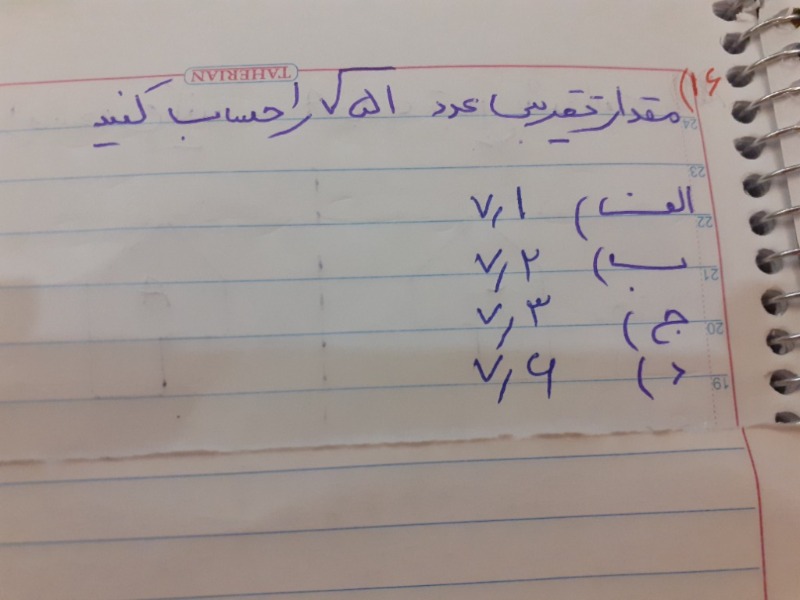 TAHERIAN
۱۶)
مقدار تقریبی عدد √۵۱ را حساب کنید
24
23
الف) ۷٫۱
22
ب) ۷٫۲
21
ج) ۷٫۳
20
د) ۷٫۶
19